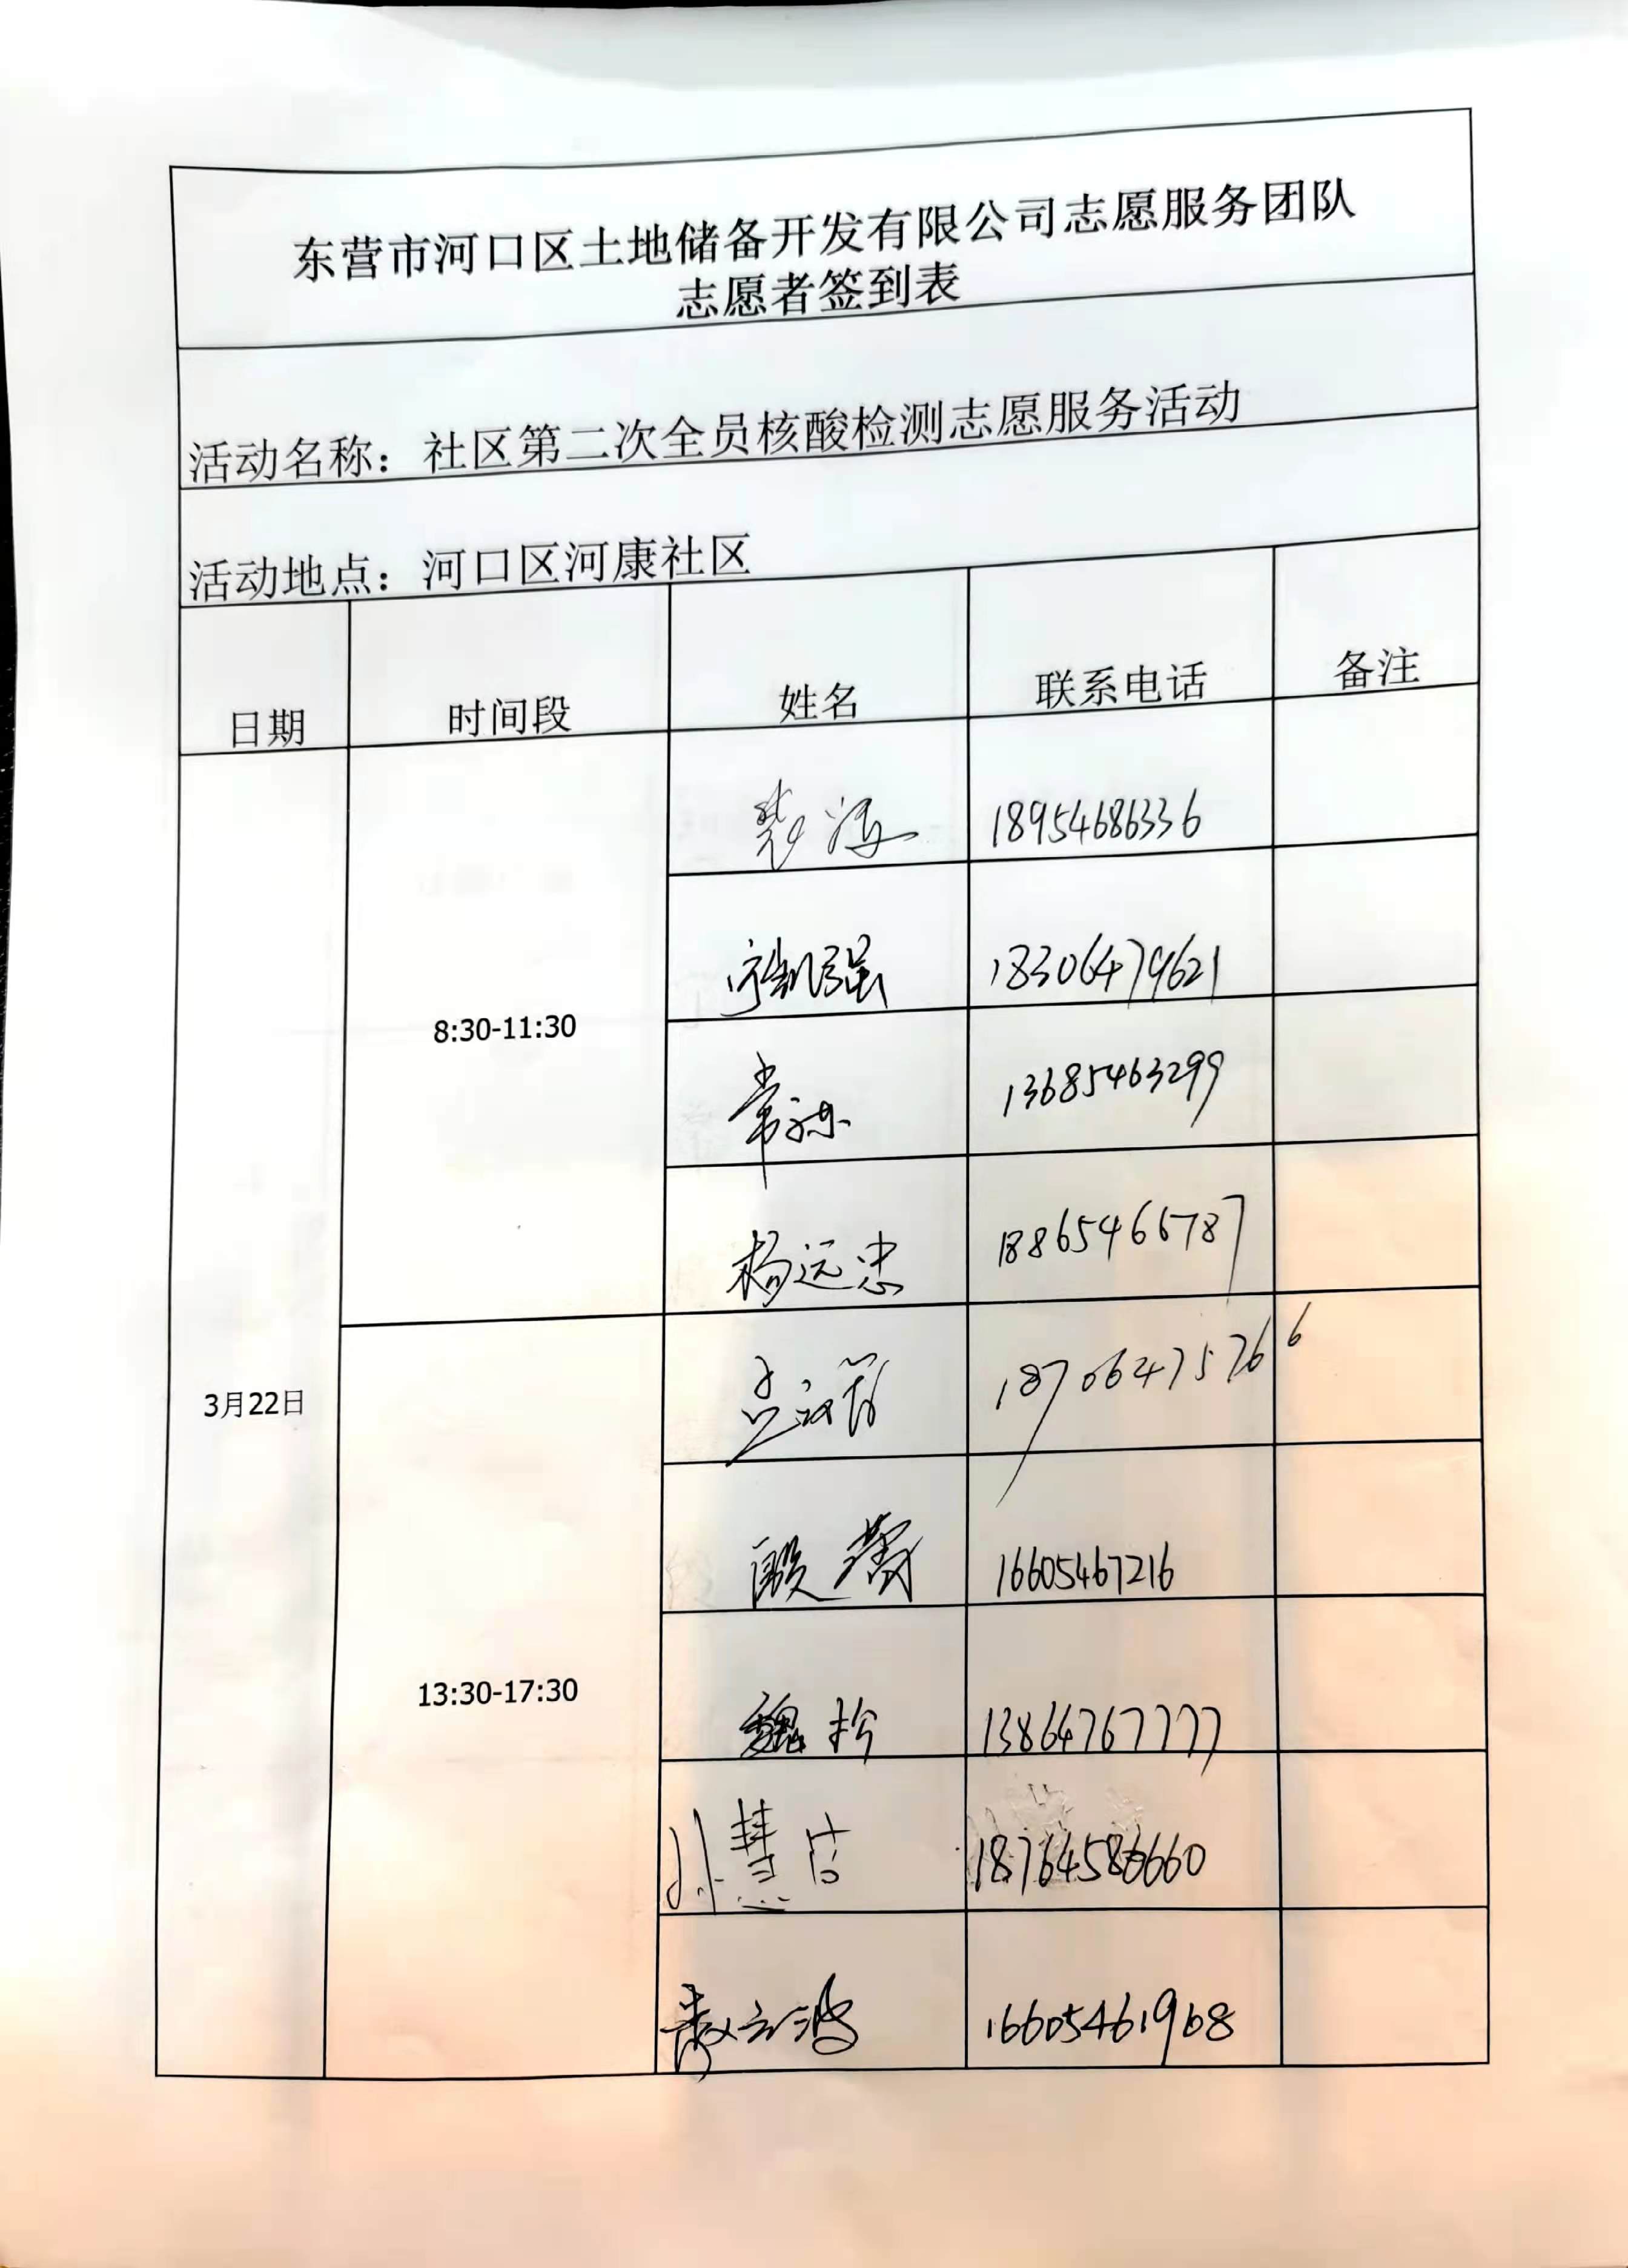 东营市河口区土地储备开发有限公司志愿服务团队
志愿者签到表
活动名称：社区第二次全员核酸检测志愿服务活动
活动地点：河口区河康社区
日期 时间段 姓名 联系电话 备注
18954686336
18306479621
8:30-11:30
常 13685463299
杨远忠 18865466787
3月22日
孟 18706475766
殷 16605467216
13:30-17:30
魏 13864767777
孙慧 18764586660
波 16605461968